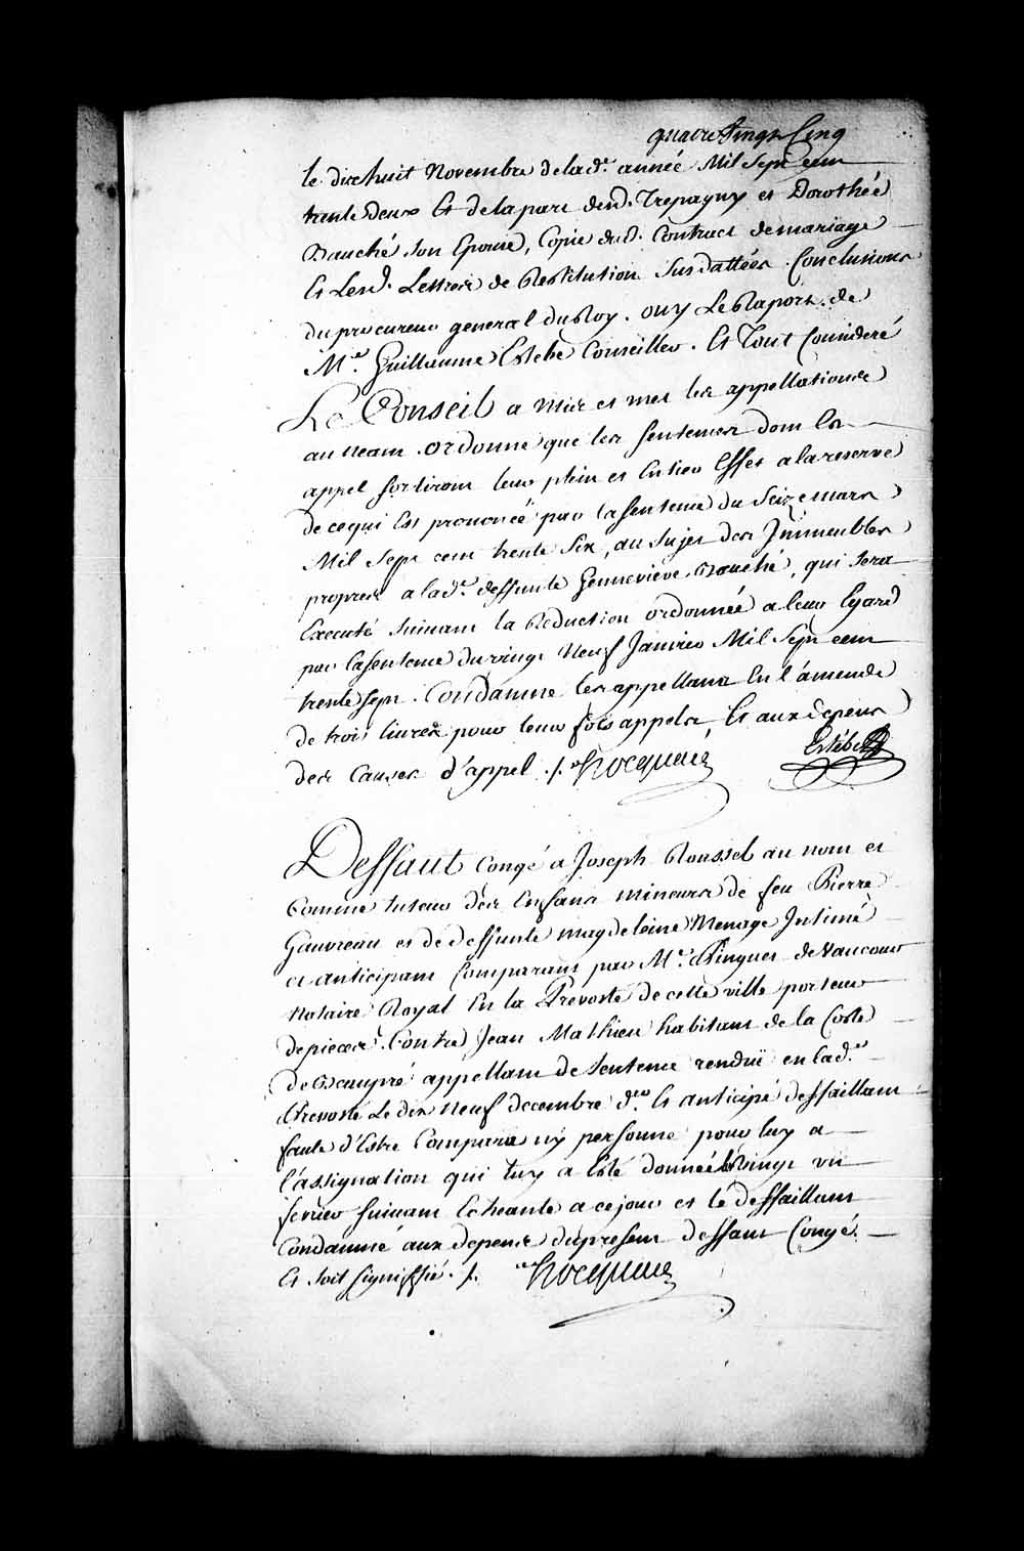 quatre Vingt Cinq
le dix huit Novembre de lad.e année Mil Sept cent
trente deux Et de la part desd. Trepagny et Dorothée
Bauché son Epouse, Copie dud. Contract de mariage
Et Lesd. Lettres de Restitution Susdattées. Conclusions
du procureur general du Roy. ouy Le Raport de
M.e Guillaume Estebe Conseiller. Et Tout Considéré
Le Conseil a mis et met les appellations
au neant. ordonne que les sentences dont Est
appel sortiront leur plein et Entier Effet a la reserve
de ce qui Est prononcé par la sentence du Seize mars
Mil Sept cent trente Six, au sujet des Immeubles
propres a lad.e deffunte Genneviève Bauché, qui sera
Executé suivant la Reduction ordonnée a leur Egard
par la sentence du vingt Neuf Janvier Mil Sept cent
trente Sept. Condamne les appellans En l'amende
de trois livres pour leurs fols appels, Et aux depens
des Causes d'appel ./. Hocquart Estèbe
Deffaut Congé a Joseph Roussel au nom et
Comme tuteur des Enfans mineurs de feu Pierre
Gauvreau et de deffunte magdeleine Menage Intimé
et anticipant Comparant par M.e Pinguet de Vaucour
Notaire Royal En la Prevosté de cette ville porteur
de pieces. Contre Jean Mathieu habitant de la Coste
de Beaupré appellant de Sentence rendüe en lad.e
Prevosté Le dix neuf decembre d.er Et anticipé deffaillant
faute d'Estre Comparu ny personne pour luy a
l'assignation qui luy a Esté donnée le Vingt un
fevrier suivant Echeante a ce jour et le deffaillant
Condamné aux depens du present deffaut Congé.
Et soit signiffié ./. Hocquart